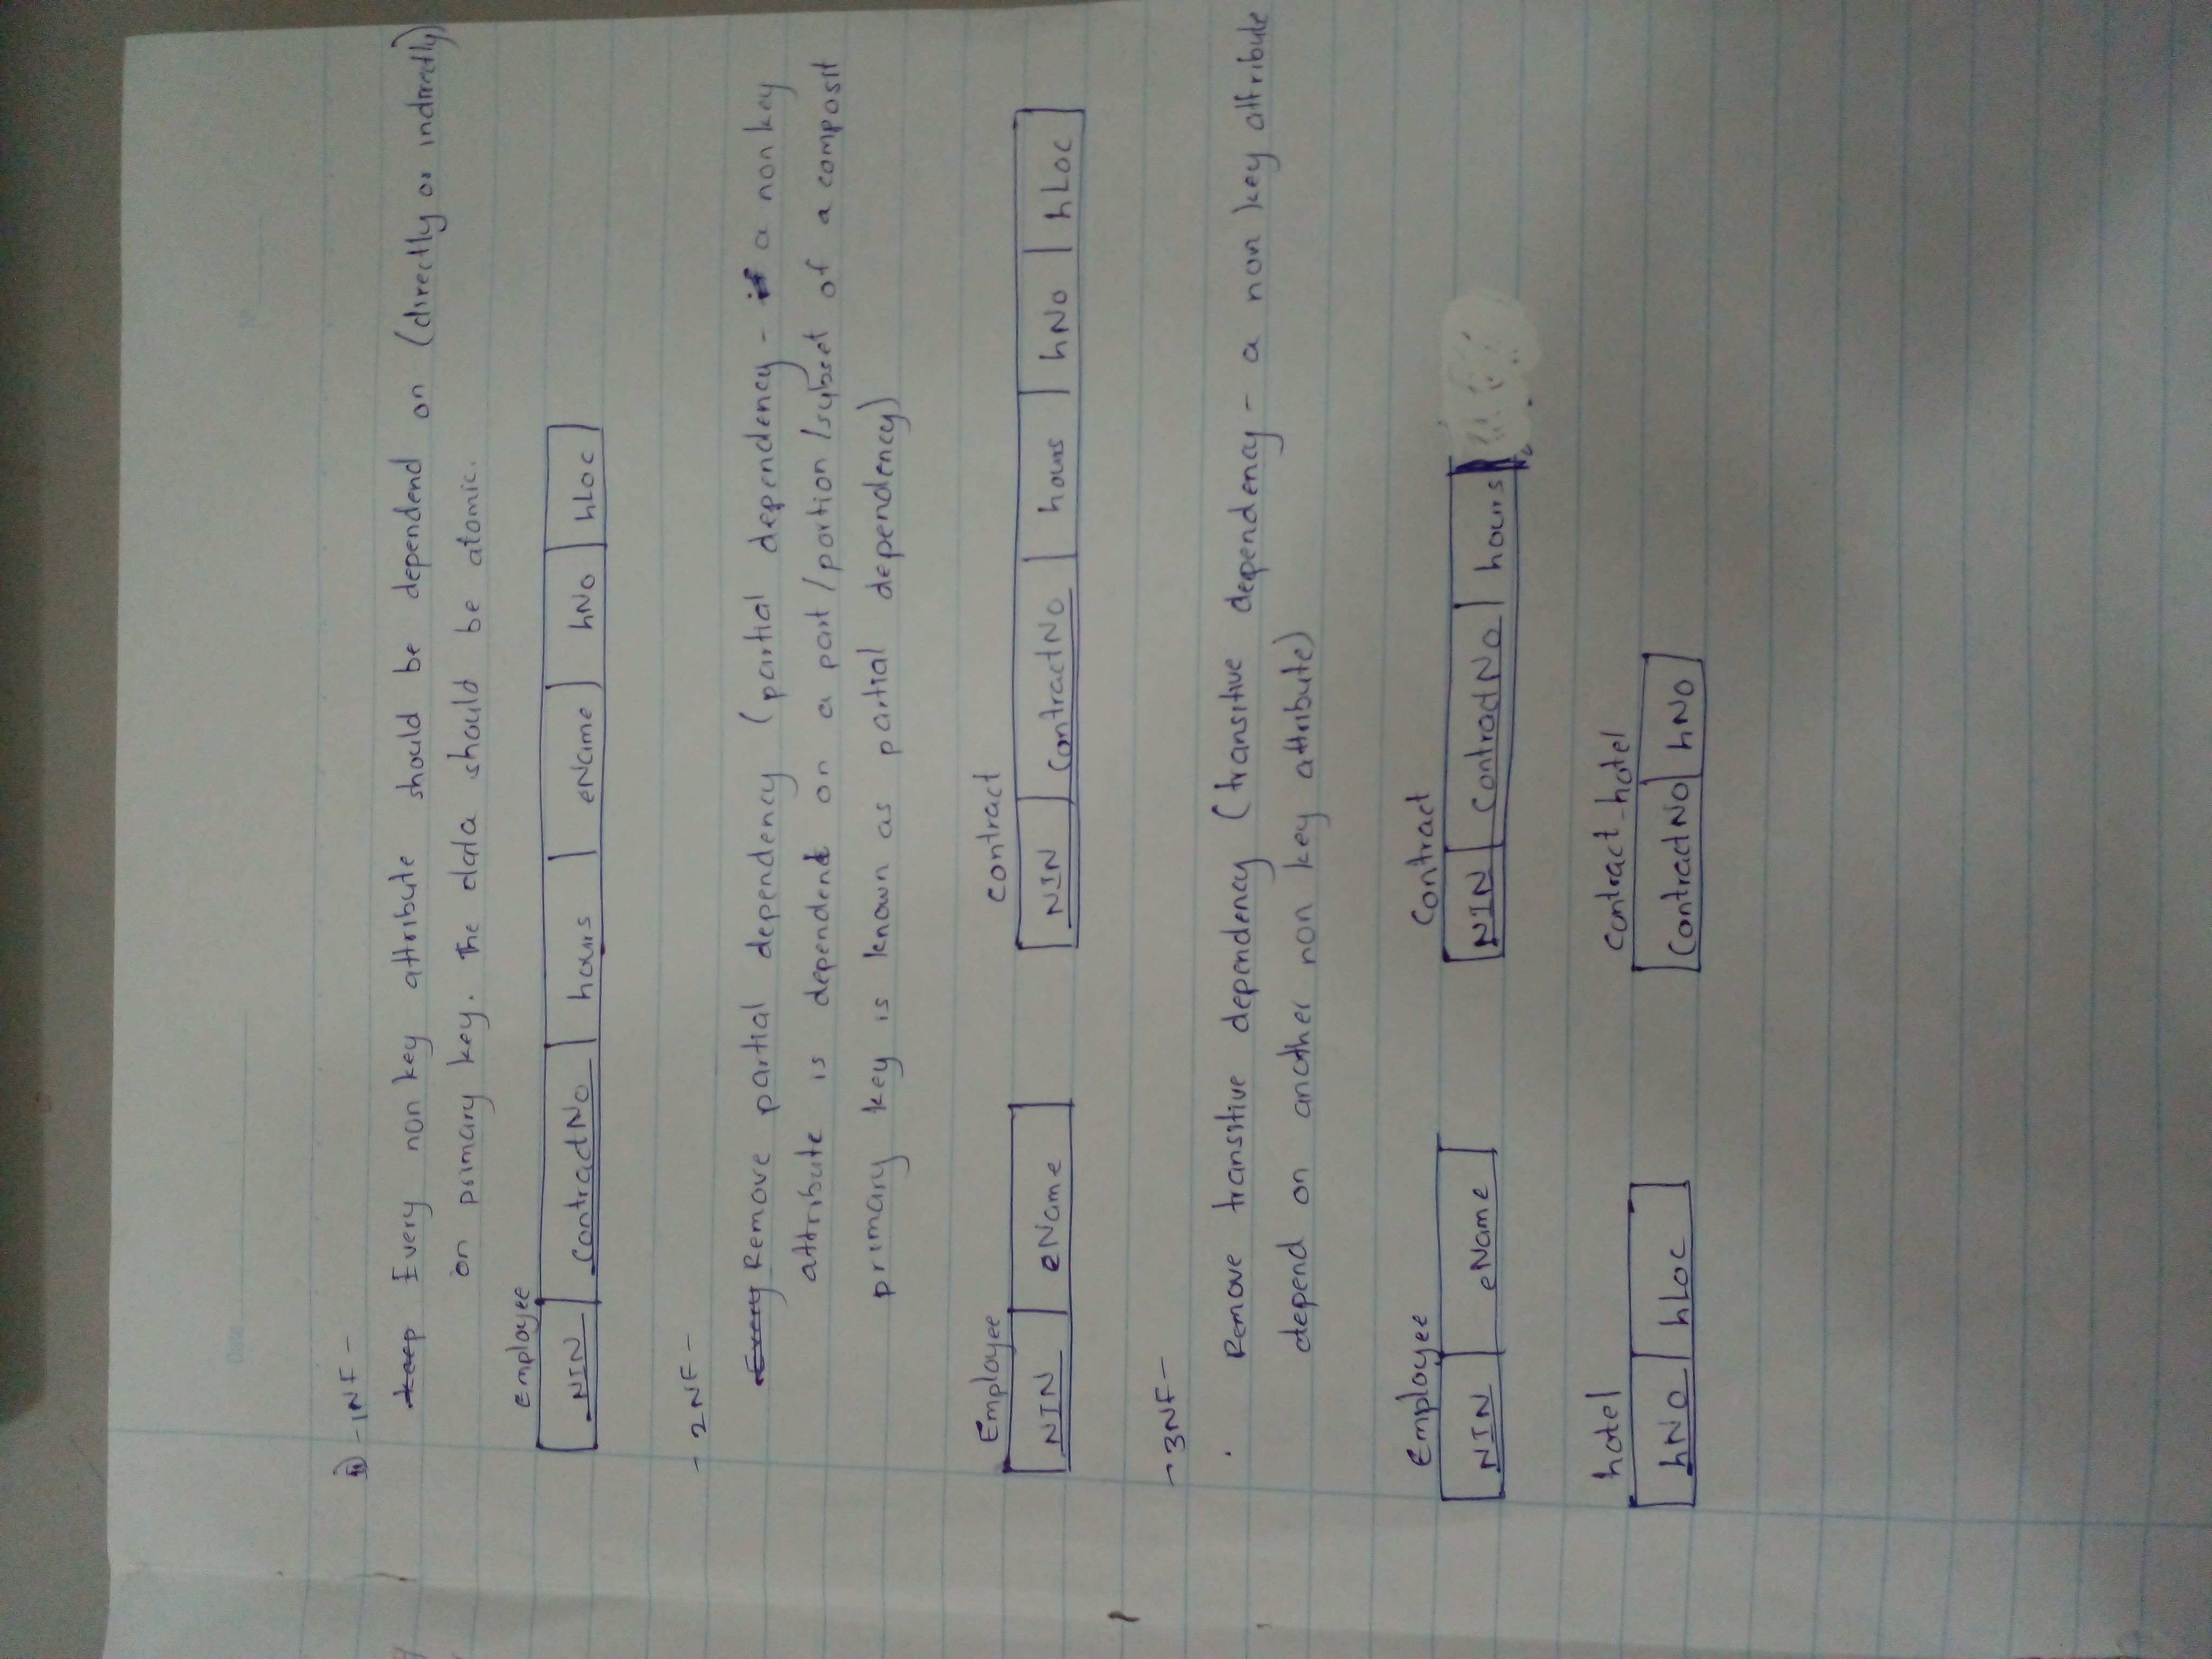 ii) -1NF-
keep Every non key attribute should be depend on (directly or indirectly)
on primary key. The data should be atomic.
employee
NIN | ContractNo | hours | eName | hNo | hLoc
- 2NF -
Every Remove partial dependency (partial dependency - if a nonkey
attribute is dependent on a part/portion/subset of a composit
primary key is known as partial dependency)
Employee Contract
NIN | eName NIN | ContractNo | hours | hNo | hLoc
- 3NF -
Remove transitive dependency (transitive dependency - a non key attribute
depend on another non key attribute)
Employee Contract
NIN | eName NIN | ContractNo | hours
hotel Contract_hotel
hNo | hLoc ContractNo | hNo